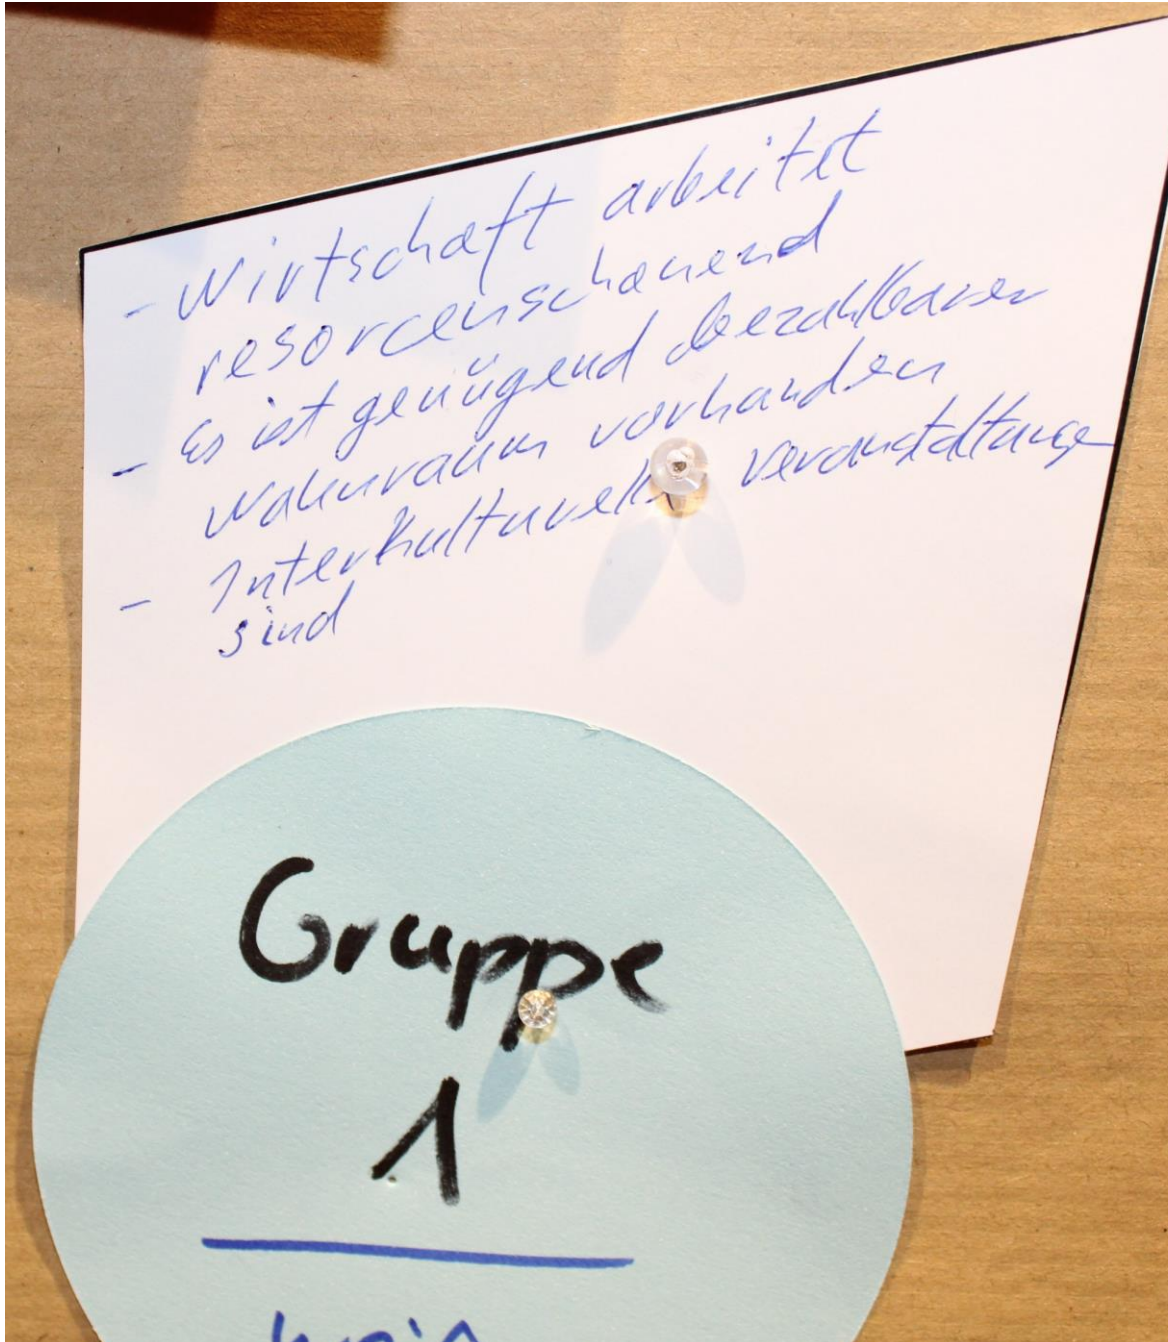 - Wirtschaft arbeitet
resorcenschonend
- Es ist genügend bezahlbarer
Wohnraum vorhanden
- Interkulturelle Veranstaltungen
sind
Gruppe
1